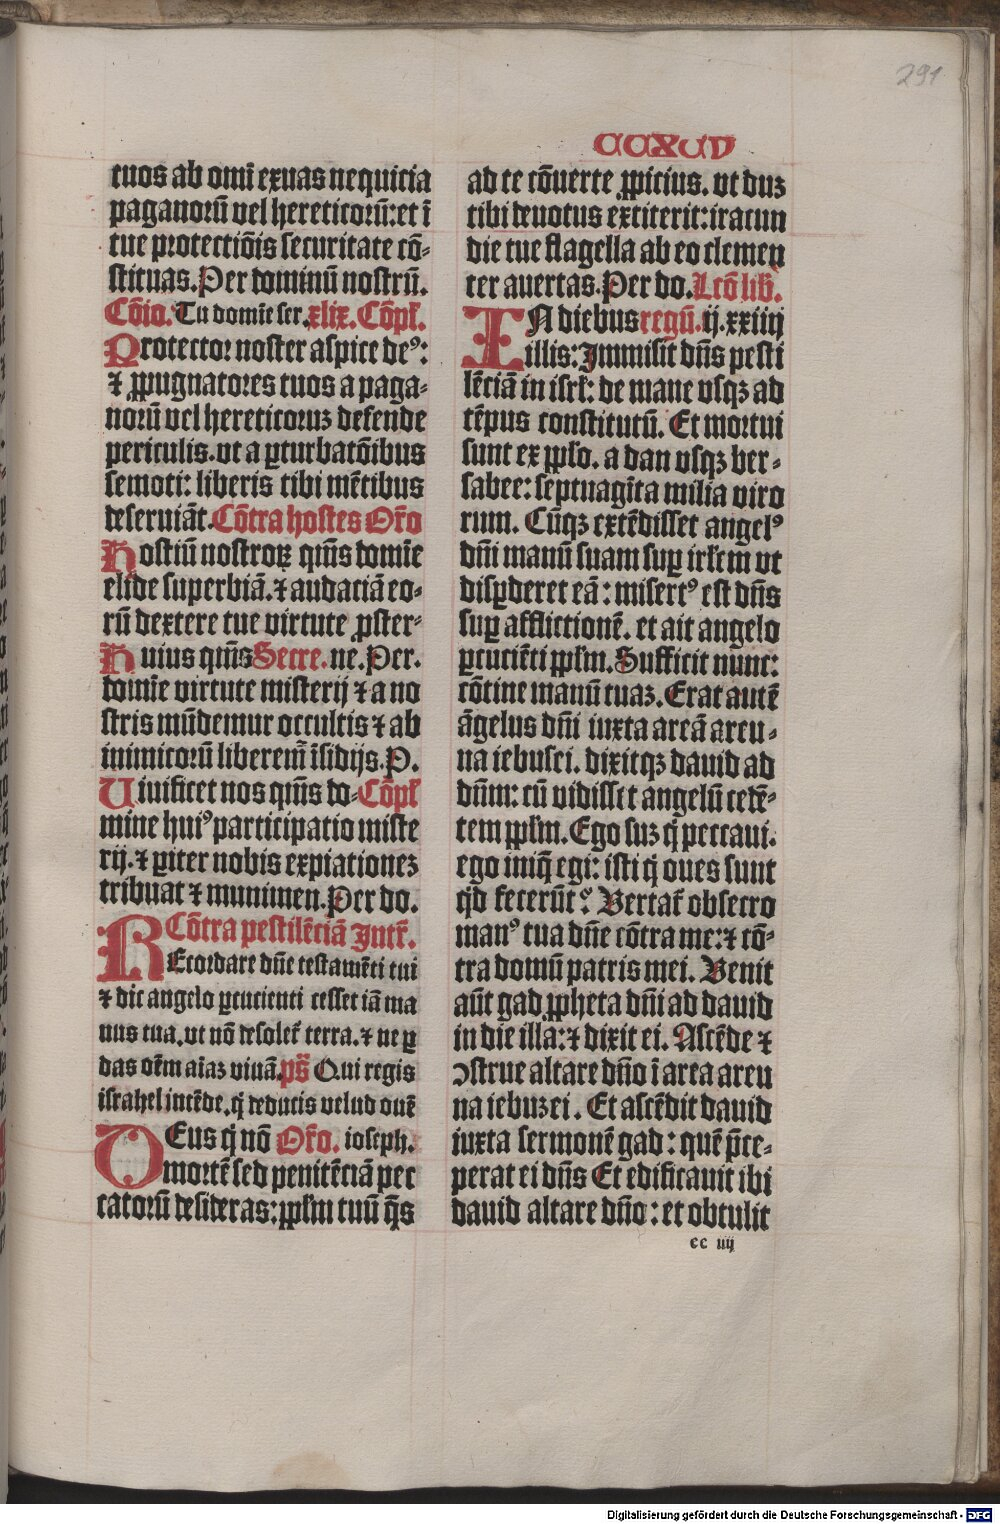 291
CCXCIV
tuos ab omī exuas nequicia
paganorū vel hereticorū: et ī
tue protectiōis securitate cō-
stituas. Per dominū nostrū.
Cōio. Tu domīe ser. xlix. Cōpł.
Protector noster aspice de⁹:
⁊ ꝓpugnatores tuos a paga-
norū vel hereticoruꝫ defende
periculis. vt a ꝑturbatōibus
semoti: liberis tibi mētibus
deseruiāt. Cōtra hostes Or̄o
Hostiū nostroꝝ q̄m̄s domīe
elide superbiā. ⁊ audaciā eo-
rū dextere tue virtute ꝓster-
Huius q̄m̄s Secre. ne. Per.
domīe virtute misterij ⁊ a no
stris mūdemur occultis ⁊ ab
inimicorū liberem̄ īsidijs. P.
Viuificet nos q̄m̄s do- Cōpł
mine hui⁹ participatio miste
rij. ⁊ ꝑiter nobis expiationeꝫ
tribuat ⁊ munimen. Per do.
Cōtra pestilēciā Intr̄.
REcordare dn̄e testamēti tui
⁊ dic angelo ꝑcucienti cesset iā ma
nus tua. vt nō desoler̄ terra. ⁊ ne ꝑ
das oēm aīaꝫ viuā. ps̄ Qui regis
israhel intēde. q̄ deducis velud ouē
DEus q̄ nō Or̄o. ioseph.
mortē sed penitēciā pec
catorū desideras: ppłm tuū q̄s
ad te cōuerte ꝓpicius. vt duꝫ
tibi deuotus extiterit: iracun
die tue flagella ab eo clemen
ter auertas. Per do. Lcō lib̄.
IN diebus regū. ij. xxiiij
illis: Immisit dn̄s pesti
lēciā in isrł: de mane vsqꝫ ad
tēpus constitutū. Et mortui
sunt ex ppło. a dan vsqꝫ ber-
sabee: septuagīta milia viro
rum. Cūqꝫ extēdisset angel⁹
dn̄i manū suam suꝑ irłem vt
disꝑderet eā: misert⁹ est dn̄s
suꝑ afflictionē. et ait angelo
ꝑcuciēti ppłm. Sufficit nunc:
cōtine manū tuaꝫ. Erat autē
āgelus dn̄i iuxta areā areu-
na iebusei. dixitqꝫ dauid ad
dn̄m: cū vidisset angelū cedē-
tem ppłm. Ego suꝫ q̄ peccaui.
ego iniq̄ egi: isti q̄ oues sunt
qd̄ fecerūt? Vertat̄ obsecro
man⁹ tua dn̄e cōtra me: ⁊ cō-
tra domū patris mei. Venit
aūt gad ꝓpheta dn̄i ad dauid
in die illa: ⁊ dixit ei. Ascēde ⁊
ꝯstrue altare dn̄o ī area areu
na iebuzei. Et ascēdit dauid
iuxta sermonē gad: quē p̄ce-
perat ei dn̄s Et edificauit ibi
dauid altare dn̄o: et obtulit
cc iiij
Digitalisierung gefördert durch die Deutsche Forschungsgemeinschaft - DFG